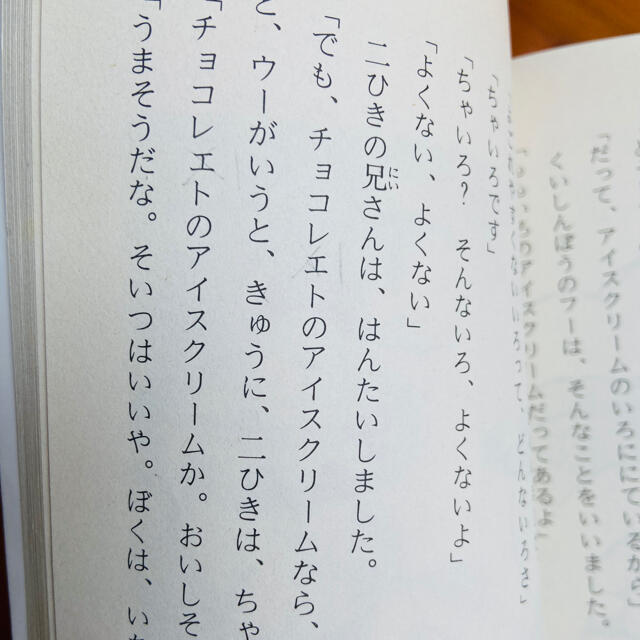 「だって、アイスクリームのいろににているから」
くいしんぼうのフーは、そんなことをいいました。
いろのアイスクリームだってあるよ」
いろって、どんないろさ」
「ちゃいろです」
「ちゃいろ？　そんないろ、よくないよ」
「よくない、よくない」
二ひきの兄さんは、はんたいしました。
にい
「でも、チョコレエトのアイスクリームなら、
と、ウーがいうと、きゅうに、二ひきは、ちゃ
「チョコレエトのアイスクリームか。おいしそ
「うまそうだな。そいつはいいや。ぼくは、いち